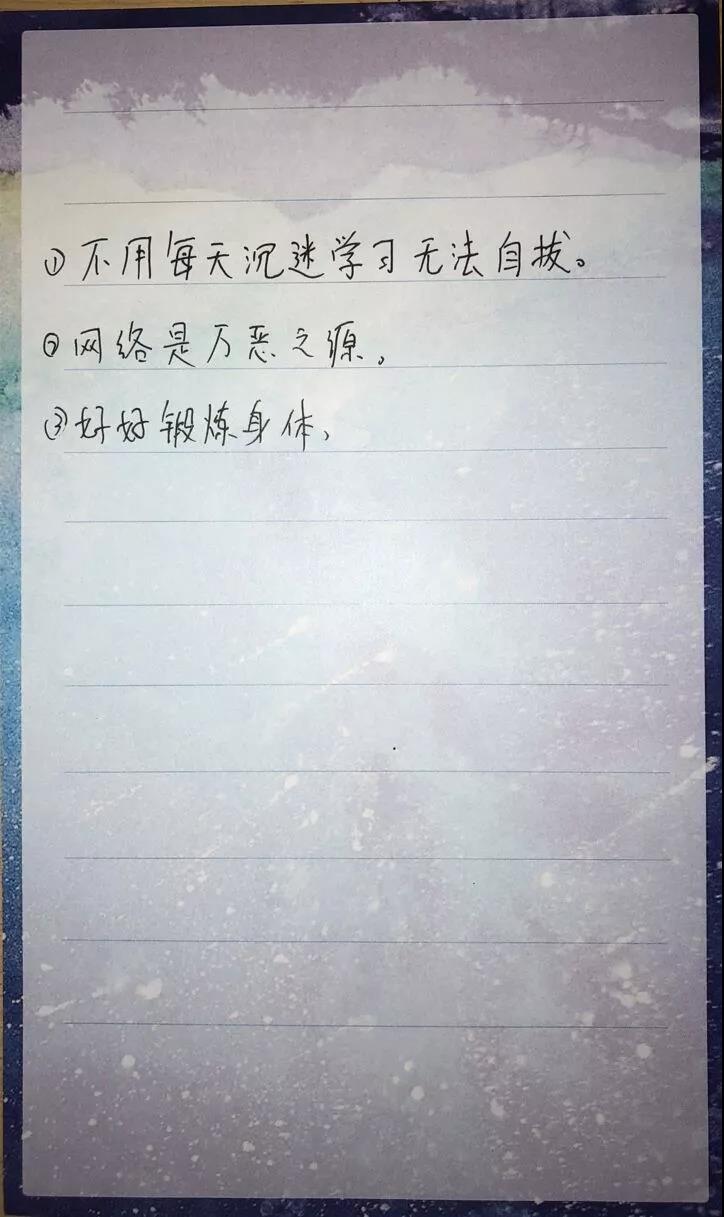 ①不用每天沉迷学习无法自拔。
②网络是万恶之源。
③好好锻炼身体,